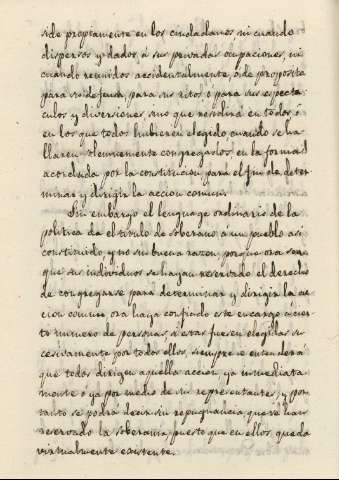 side propiamente en los ciudadanos ni cuando
dispersos y dados á sus privadas ocupaciones, ni
cuando reunidos accidentalmente, ó de proposito
para su defensa, para sus ritos ó para sus espectá-
culos y diversiones sino que residirá en todos ó
en los que todos hubieren elegido cuando se ha-
llaren solemnemente congregados en la forma
acordada por la constitucion para el fin de deter-
minar y dirigir la accion comun.
Sin embargo el lenguage ordinario de la
politica da el titulo de soberano á un pueblo asi
constituido, y no sin buena razon, porque ora sea
que sus individuos se hayan reservado el derecho
de congregarse para determinar y dirigir la ac-
cion comun, ora haya confiado este encargo á cier-
to número de personas, si estas fuesen elegidas su-
cesivamente por todos ellos, siempre se entenderá
que todos dirigen aquella accion, ya inmediata-
mente ó ya por medio de sus representantes, y por
tanto se podrá decir sin repugnancia, que se han
reservado la soberania, puesto que en ellos queda
virtualmente existente.